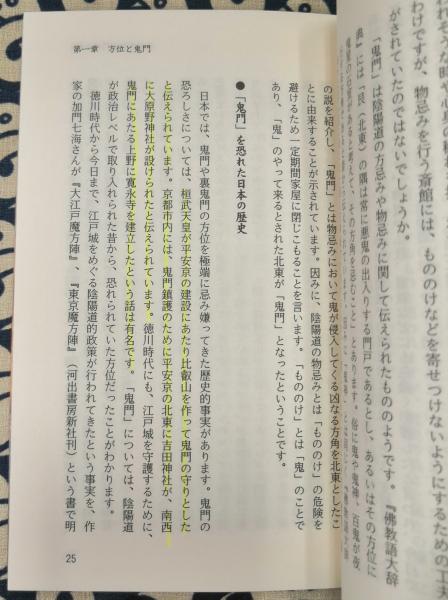 第一章　方位と鬼門
わけですが、物忌みを行う斎館には、もののけなどを寄せつけないようにするための工
がされていたのではないでしょうか。
「鬼門」は陰陽道の方忌みや物忌みに関して伝えられたもののようです。『佛教語大辞
典』には「艮（北東）の隅は常に悪鬼の出入りする門戸であるとし、あるいはその方位に
の説を紹介し、「鬼門」とは物忌みにおいて鬼が侵入してくる凶なる方角を北東としたこ
とに由来することが示されています。因みに、陰陽道の物忌みとは「もののけ」の危険を
避けるため一定期間家屋に閉じこもることを言います。「もののけ」とは「鬼」のことで
あり、「鬼」のやって来るとされた北東が「鬼門」となったということです。
●「鬼門」を恐れた日本の歴史
日本では、鬼門や裏鬼門の方位を極端に忌み嫌ってきた歴史的事実があります。鬼門の
恐ろしさについては、桓武天皇が平安京の建設にあたり比叡山を作って鬼門の守りとした
と伝えられています。京都市内には、鬼門鎮護のために平安京の北東に吉田神社が、南西
に大原野神社が設けられたと伝えられています。徳川時代にも、江戸城を守護するために、
鬼門にあたる上野に寛永寺を建立したという話は有名です。「鬼門」については、陰陽道
が政治レベルで取り入れられた昔から、恐れられていた方位だったことがわかります。
徳川時代から今日まで、江戸城をめぐる陰陽道的政策が行われてきたという事実を、作
家の加門七海さんが『大江戸魔方陣』、『東京魔方陣』（河出書房新社刊）という書で明
25